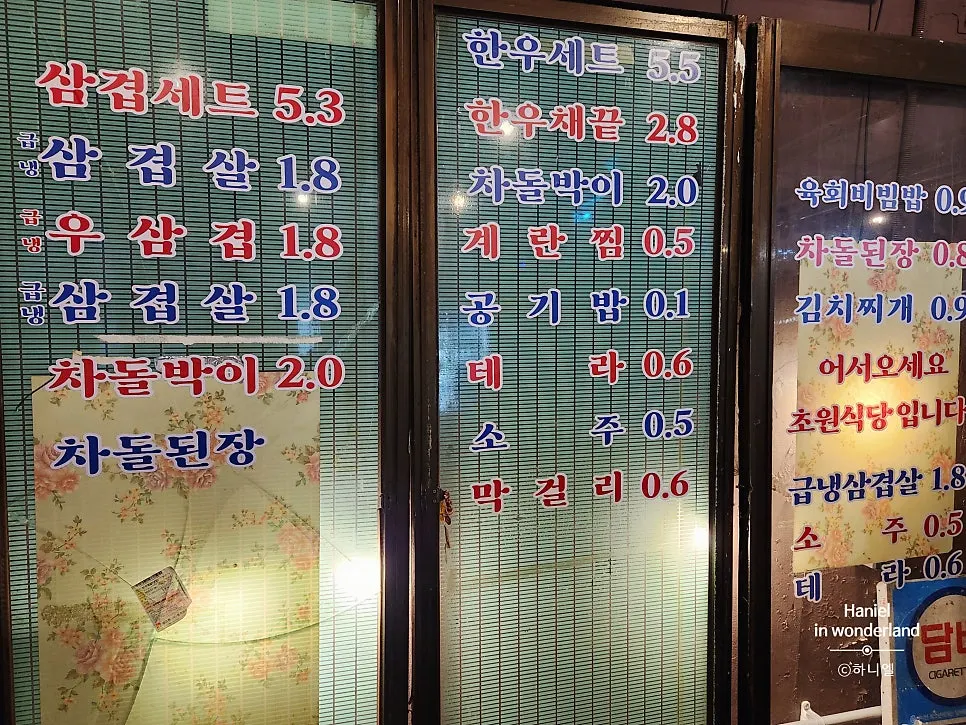 삼겹세트 5.3
급냉 삼겹살 1.8
급냉 우삼겹 1.8
급냉 삼겹살 1.8
차돌박이 2.0
차돌된장
한우세트 5.5
한우채끝 2.8
차돌박이 2.0
계란찜 0.5
공기밥 0.1
테라 0.6
소주 0.5
막걸리 0.6
육회비빔밥 0.9
차돌된장 0.8
김치찌개 0.9
어서오세요
초원식당입니다
급냉삼겹살 1.8
소주 0.5
테라 0.6
Haniel
in wonderland
ⓒ하니엘
담배
CIGARET